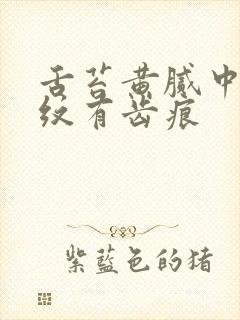 舌苔黄腻中
纹有齿痕
紫蓝色的猪